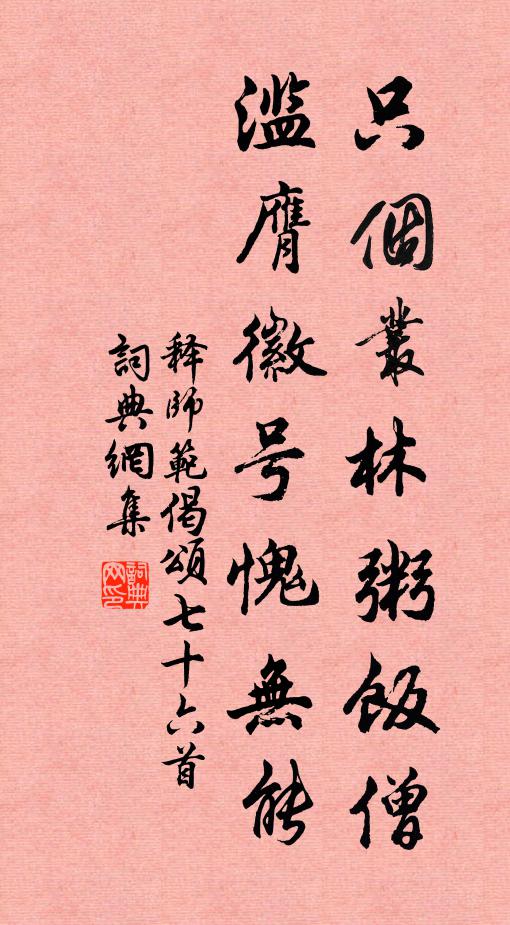 只個叢林粥飯僧
濫膺徽号愧無能
释師範偈頌七十六首
詞典網集
詞典
网印